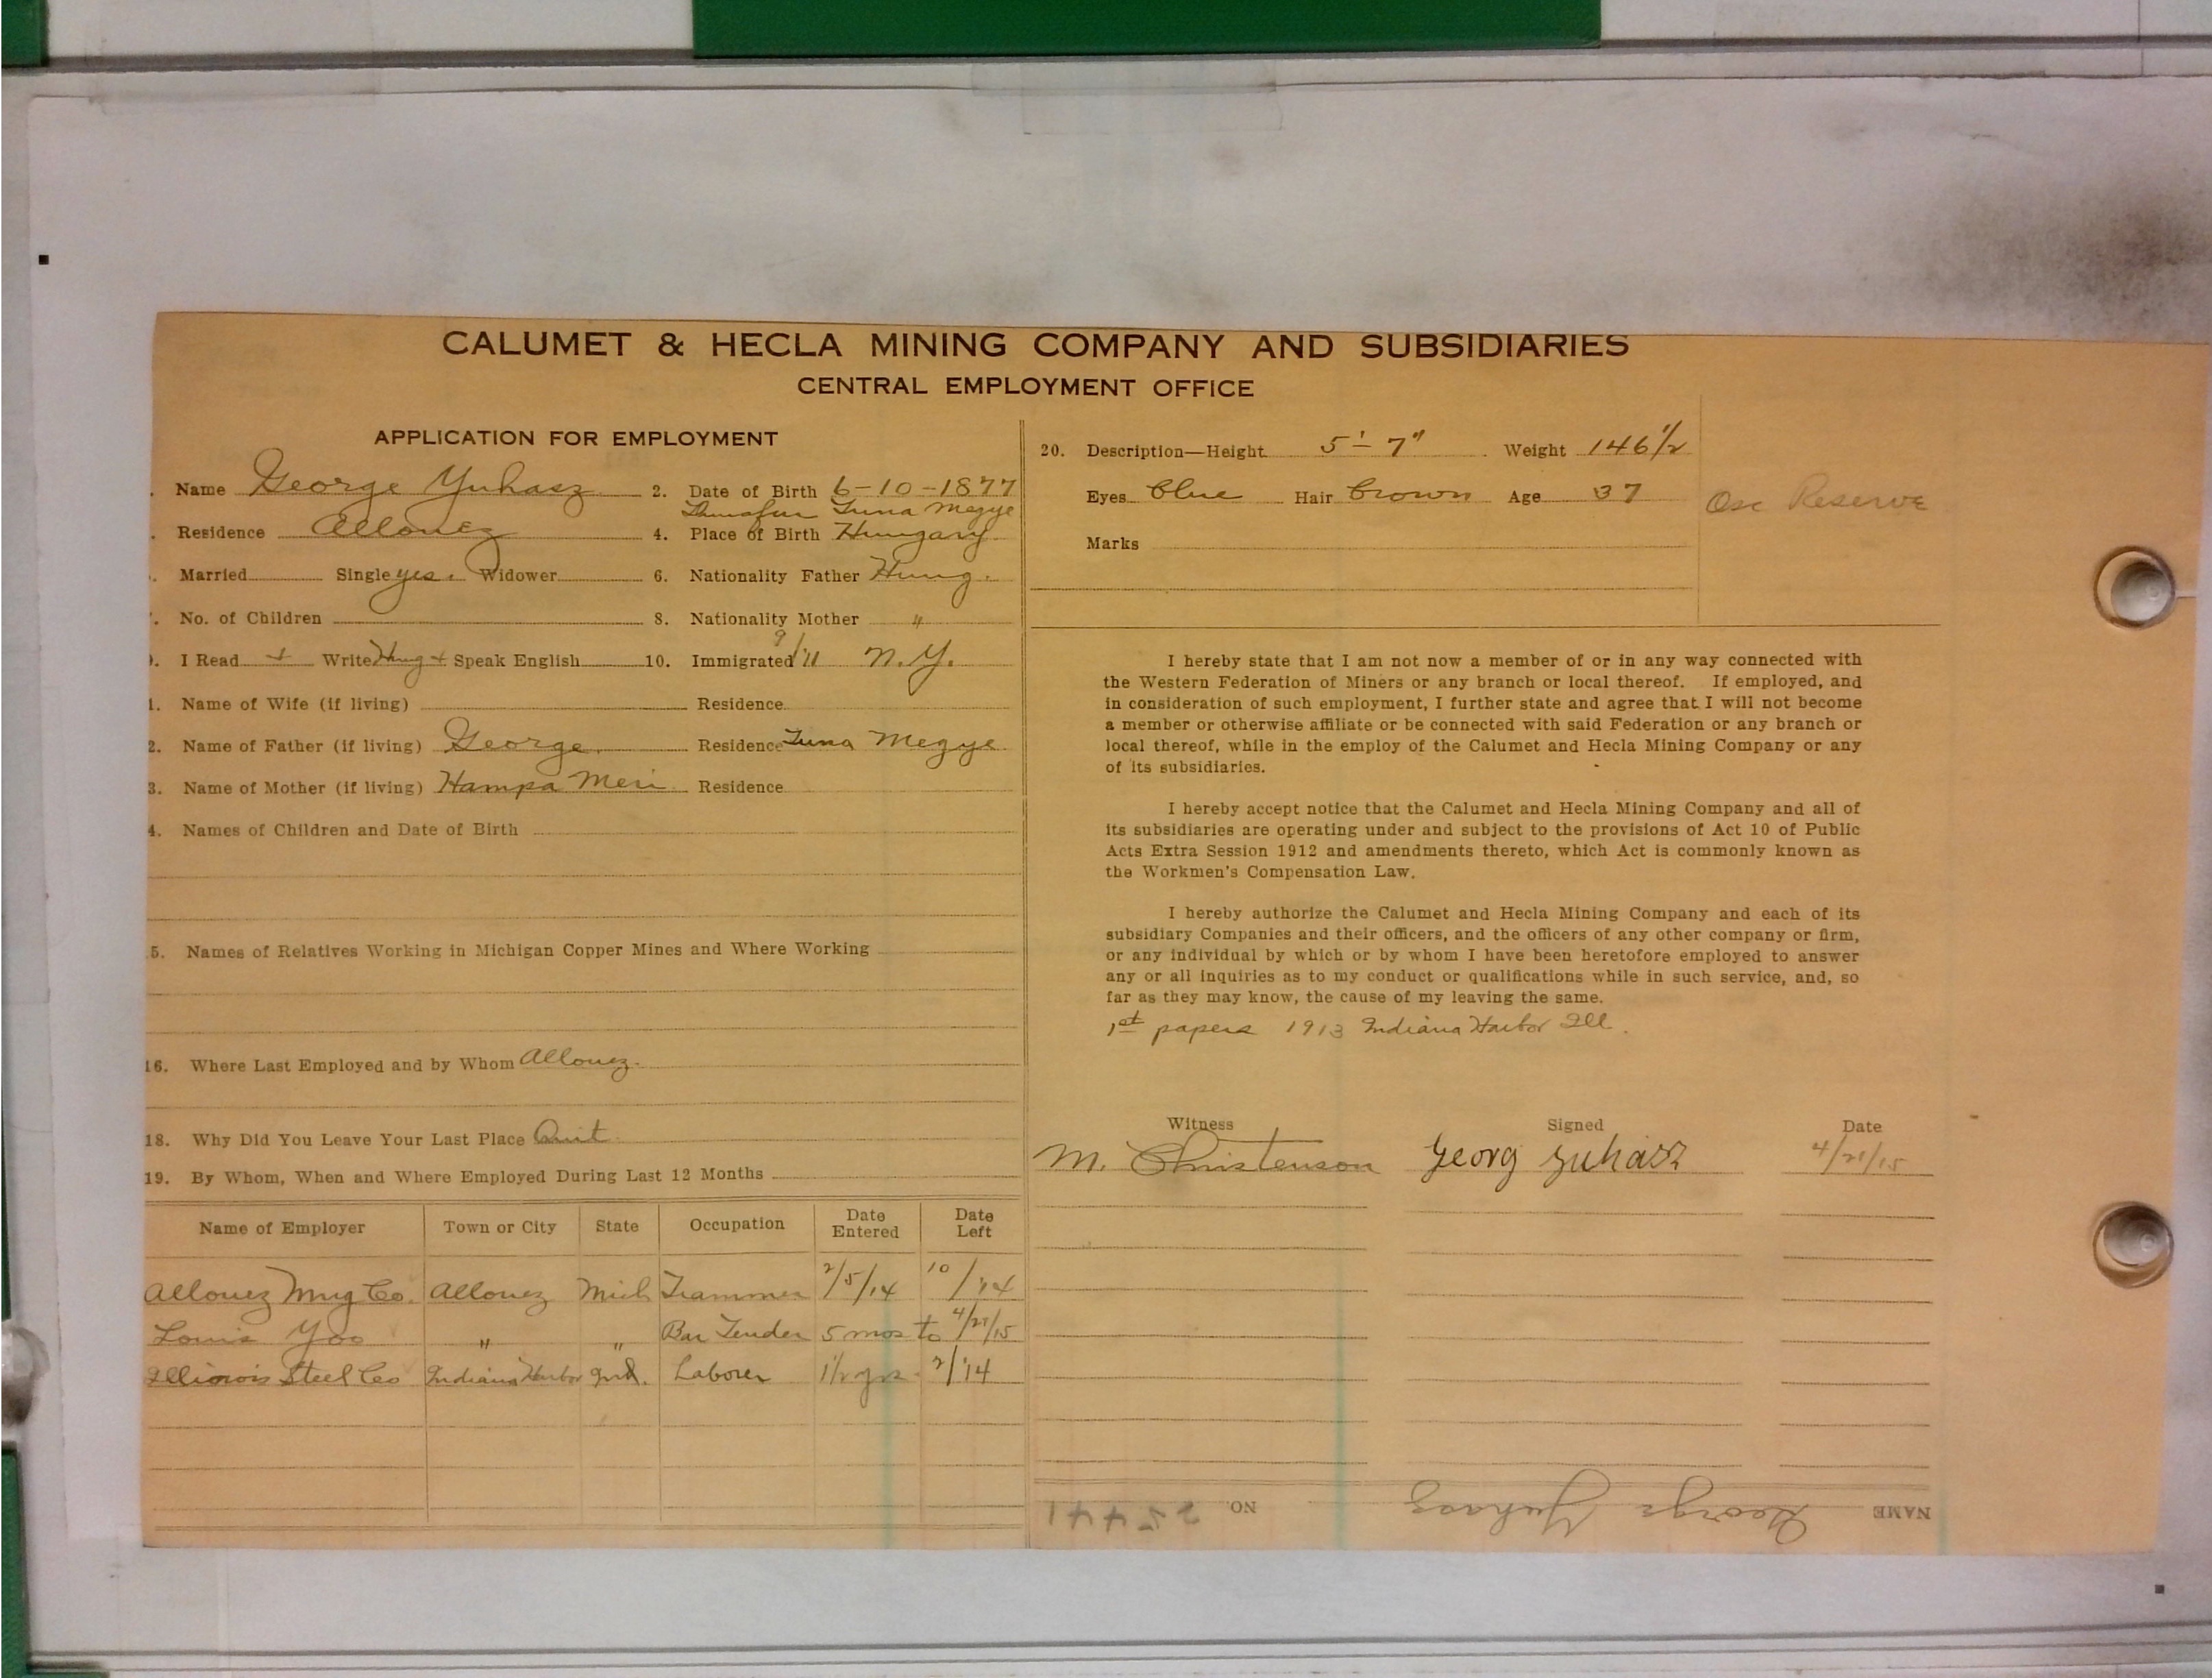 CALUMET & HECLA MINING COMPANY AND SUBSIDIARIES
CENTRAL EMPLOYMENT OFFICE
APPLICATION FOR EMPLOYMENT
. Name George Yuhasz 2. Date of Birth 6-10-1877
Tuna Megye
. Residence Allouez 4. Place of Birth Hungary
. Married Single yes. Widower 6. Nationality Father Hung.
. No. of Children 8. Nationality Mother "
. I Read + Write Hung + Speak English 10. Immigrated 9/'11 N.Y.
1. Name of Wife (if living) Residence
2. Name of Father (if living) George Residence Tuna Megye
3. Name of Mother (if living) Hampa Meri Residence
4. Names of Children and Date of Birth
5. Names of Relatives Working in Michigan Copper Mines and Where Working
16. Where Last Employed and by Whom Allouez.
18. Why Did You Leave Your Last Place Quit
19. By Whom, When and Where Employed During Last 12 Months
Name of Employer Town or City State Occupation Date Entered Date Left
Allouez Mng Co. Allouez Mich Trammer 2/5/14 10/'14
Louis Yoo " " Bar Tender 5 mos to 4/21/15
Illinois Steel Co Indiana Harbor Ind. Laborer 1 1/2 yrs. 2/'14
20. Description—Height 5'-7" Weight 146 1/2
Eyes blue Hair brown Age 37
Osc Reserve
Marks
I hereby state that I am not now a member of or in any way connected with
the Western Federation of Miners or any branch or local thereof. If employed, and
in consideration of such employment, I further state and agree that I will not become
a member or otherwise affiliate or be connected with said Federation or any branch or
local thereof, while in the employ of the Calumet and Hecla Mining Company or any
of its subsidiaries.
I hereby accept notice that the Calumet and Hecla Mining Company and all of
its subsidiaries are operating under and subject to the provisions of Act 10 of Public
Acts Extra Session 1912 and amendments thereto, which Act is commonly known as
the Workmen's Compensation Law.
I hereby authorize the Calumet and Hecla Mining Company and each of its
subsidiary Companies and their officers, and the officers of any other company or firm,
or any individual by which or by whom I have been heretofore employed to answer
any or all inquiries as to my conduct or qualifications while in such service, and, so
far as they may know, the cause of my leaving the same.
1st papers 1913 Indiana Harbor Ill.
Witness Signed Date
M. Christenson Georg Juhasz 4/21/15
NAME George Yuhasz NO. 25441